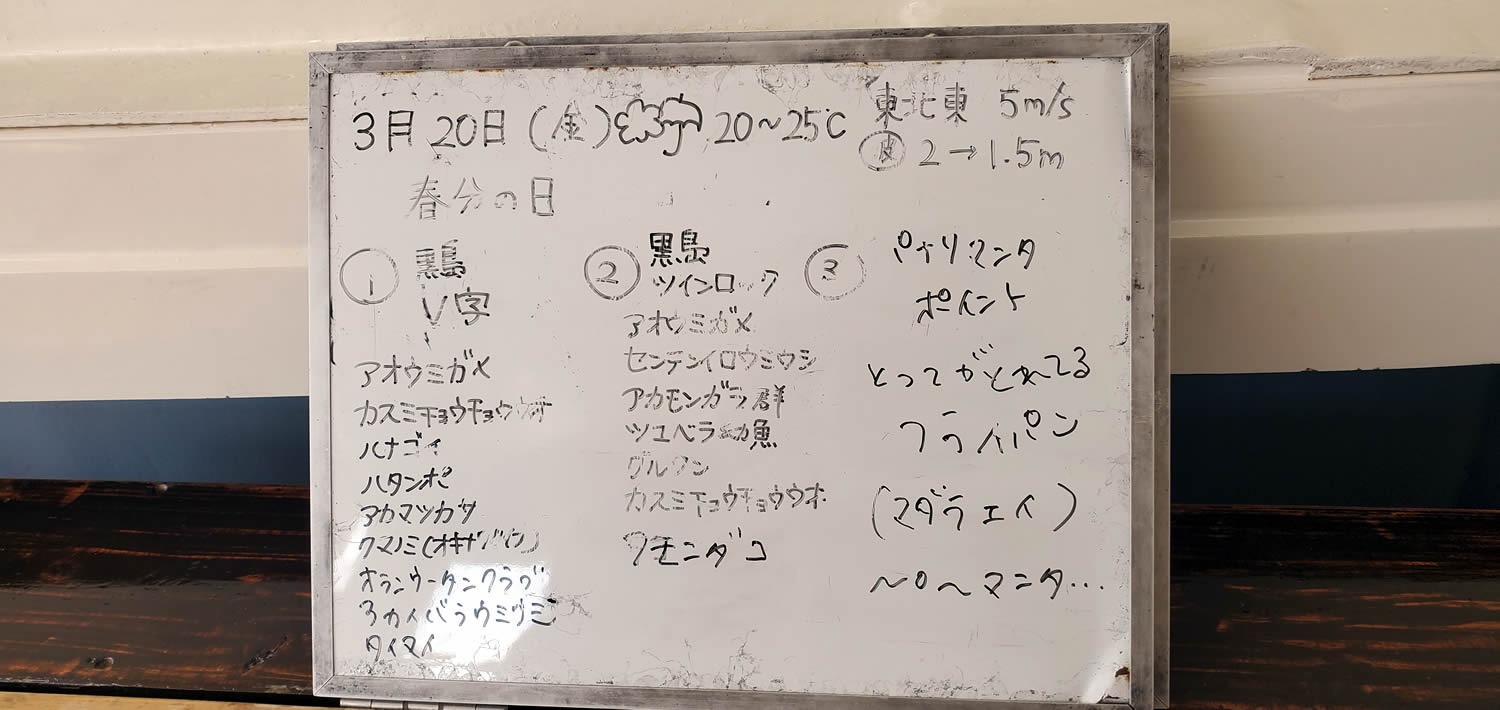 3月20日(金) 20~25℃
東北東 5m/s
波 2→1.5m
春分の日
① 黒島
V字
アオウミガメ
カスミチョウチョウウオ
ハナゴイ
ハタンポ
アカマツカサ
クマノミ(
オランウータンクラブ
タイマイ
② 黒島
ツインロック
アオウミガメ
センテンイロウミウシ
アカモンガラ群
ツユベラ幼魚
グルクン
カスミチョウチョウウオ
ワモンダコ
③
パナリマンタ
ポイント
とってがとれてる
フライパン
(マダラエイ)
マンタ…